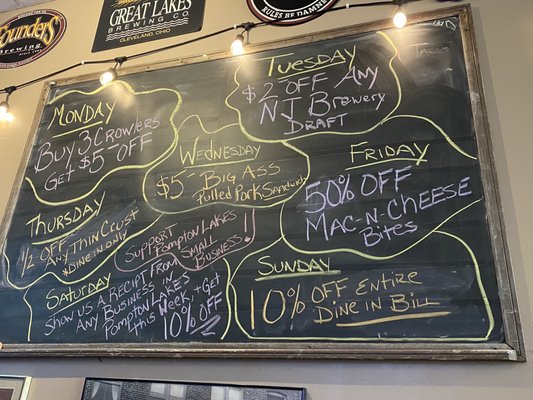 Founders
Brewing
GREAT LAKES
BREWING CO.
CLEVELAND, OHIO
RULES BE DAMNED
MONDAY
BUY 3 CROWLERS
GET $5 OFF
TUESDAY
$2 OFF ANY
NJ BREWERY
DRAFT
TACOS
WEDNESDAY
$5 BIG ASS
PULLED PORK SANDWICH
THURSDAY
1/2 OFF
ANY THIN CRUST
*DINE IN ONLY
FRIDAY
50% OFF
MAC-N-CHEESE
BITES
SUPPORT
POMPTON LAKES
SMALL
BUSINESS!
SATURDAY
SHOW US A RECIPT FROM
ANY BUSINESS IN
POMPTON LAKES
THIS WEEK, + GET
10% OFF
SUNDAY
10% OFF ENTIRE
DINE IN BILL